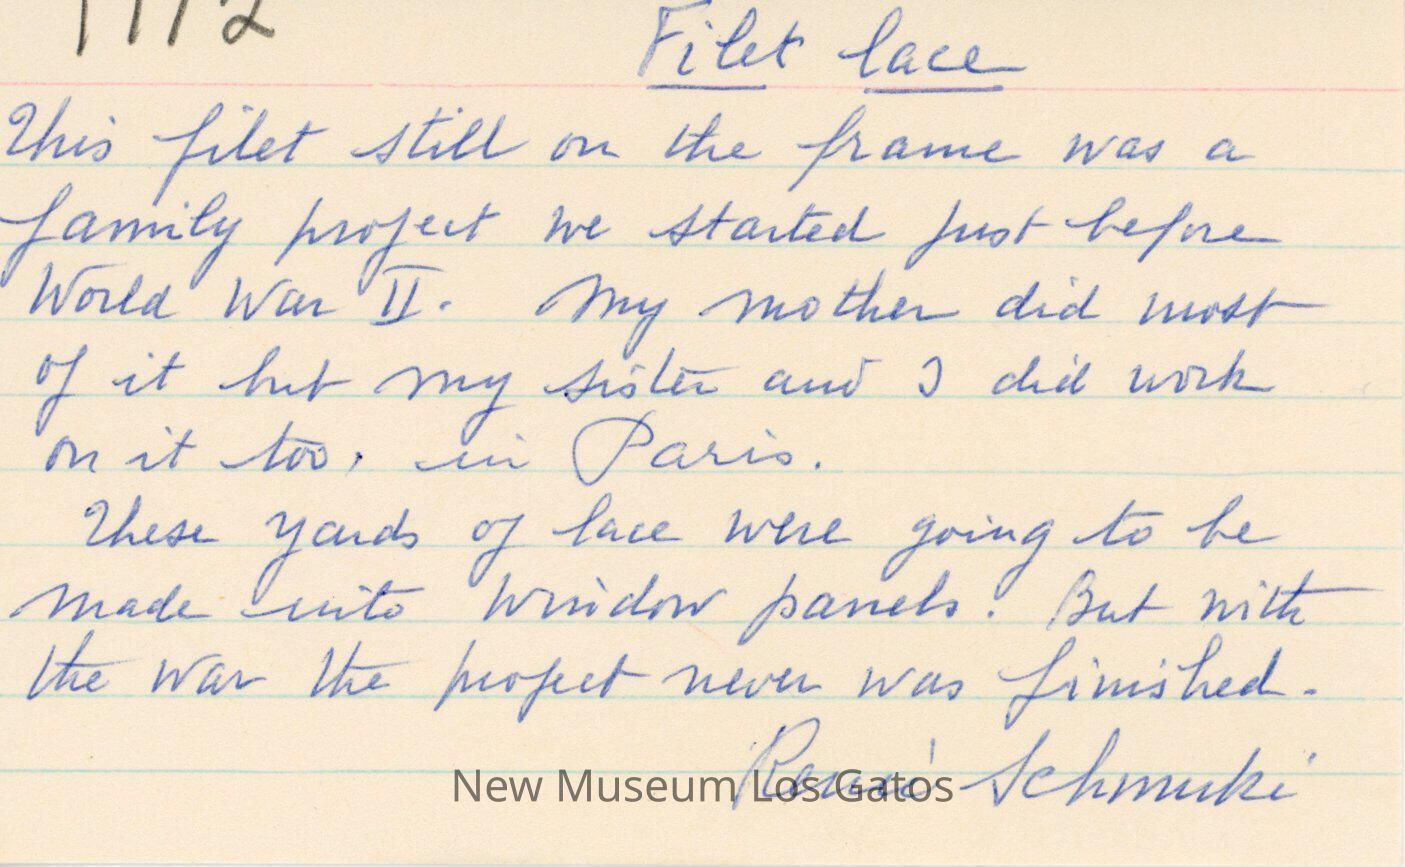 Filet lace
This filet still on the frame was a
family project we started just before
World War II. My mother did most
of it but my sister and I did work
on it too, in Paris.
These yards of lace were going to be
made into window panels. But with
the war the project never was finished.
Schmuki
New Museum Los Gatos